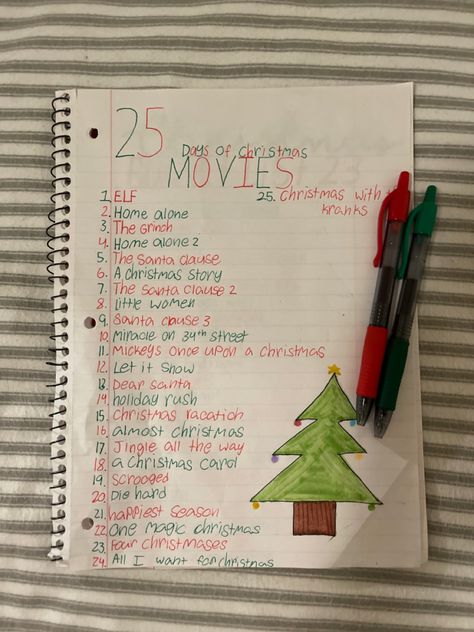 25 Days of christmas
MOVIES
1. ELF
2. Home alone
3. The Grinch
4. Home alone 2
5. The santa clause
6. A christmas story
7. The santa clause 2
8. Little women
9. Santa clause 3
10. Miracle on 34th street
11. Mickeys once upon a christmas
12. Let it snow
13. Dear santa
14. holiday rush
15. Christmas vacation
16. almost christmas
17. Jingle all the way
18. a christmas carol
19. Scrooged
20. Die hard
21. happiest season
22. One magic christmas
23. Four christmases
24. All I want for christmas
25. Christmas with
kranks